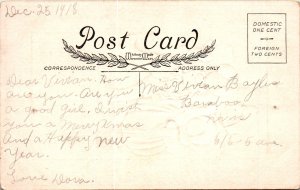 Dec. 25 1918
Post Card
DOMESTIC
ONE CENT
FOREIGN
TWO CENTS
CORRESPONDENCE
ADDRESS ONLY
Dear Vivian. How
are you. Are you
a good girl. I wish
you a Merry Xmas
And a Happy New
Year.
Love Dora.
Miss Vivian Bayles
Baraboo
Wis